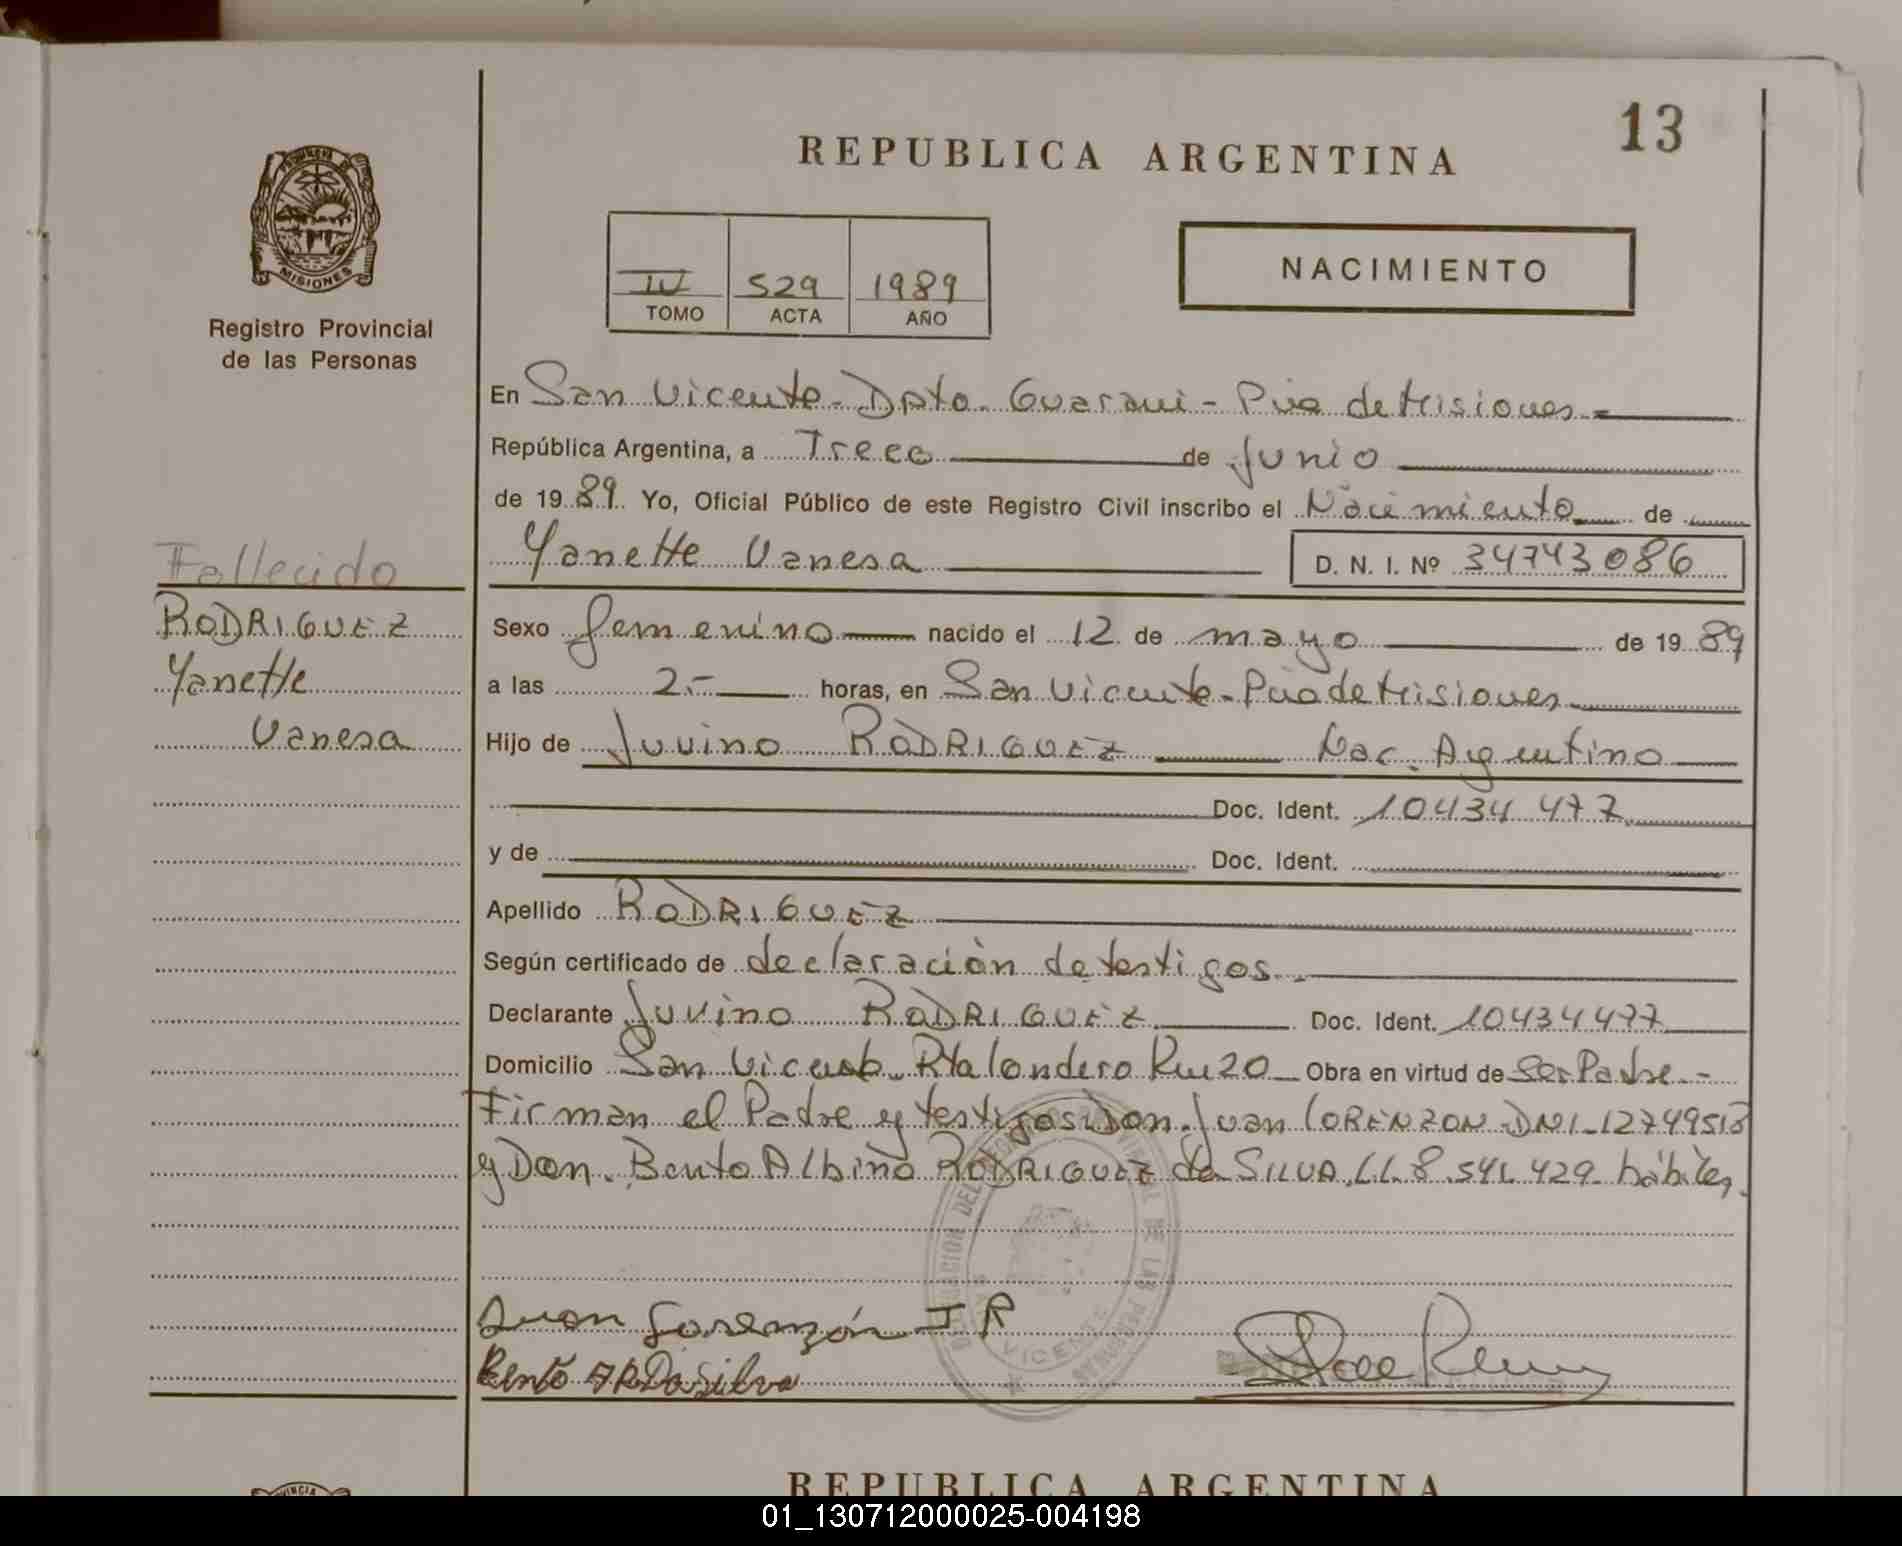 13
REPUBLICA ARGENTINA
PROVINCIA DE
MISIONES
Registro Provincial
de las Personas
IV 529 1989
TOMO ACTA AÑO
NACIMIENTO
En San Vicente - Dpto. Guarani - Pcia de Misiones
República Argentina, a Trece de Junio
de 1989 Yo, Oficial Público de este Registro Civil inscribo el Nacimiento de
Yanette Vanesa D. N. I. Nº 34743086
Fallecido
RODRIGUEZ
Yanette
Vanesa
Sexo femenino nacido el 12 de mayo de 1989
a las 2.- horas, en San Vicente - Pcia de Misiones
Hijo de Juvino RODRIGUEZ Nac. Argentino
Doc. Ident. 10434477
y de Doc. Ident.
Apellido RODRIGUEZ
Según certificado de declaración de testigos.
Declarante Juvino RODRIGUEZ Doc. Ident. 10434477
Domicilio San Vicente Km 20 Obra en virtud de Ser Padre.-
Firman el Padre y testigos Don. Juan LORENZON DNI 12749513
y Don. Bento Albino RODRIGUEZ da SILVA. 8.541.429 hábiles.
Juan Lorenzón J R
Bento A R Da Silva
VICENTE
REPUBLICA ARGENTINA
01_130712000025-004198